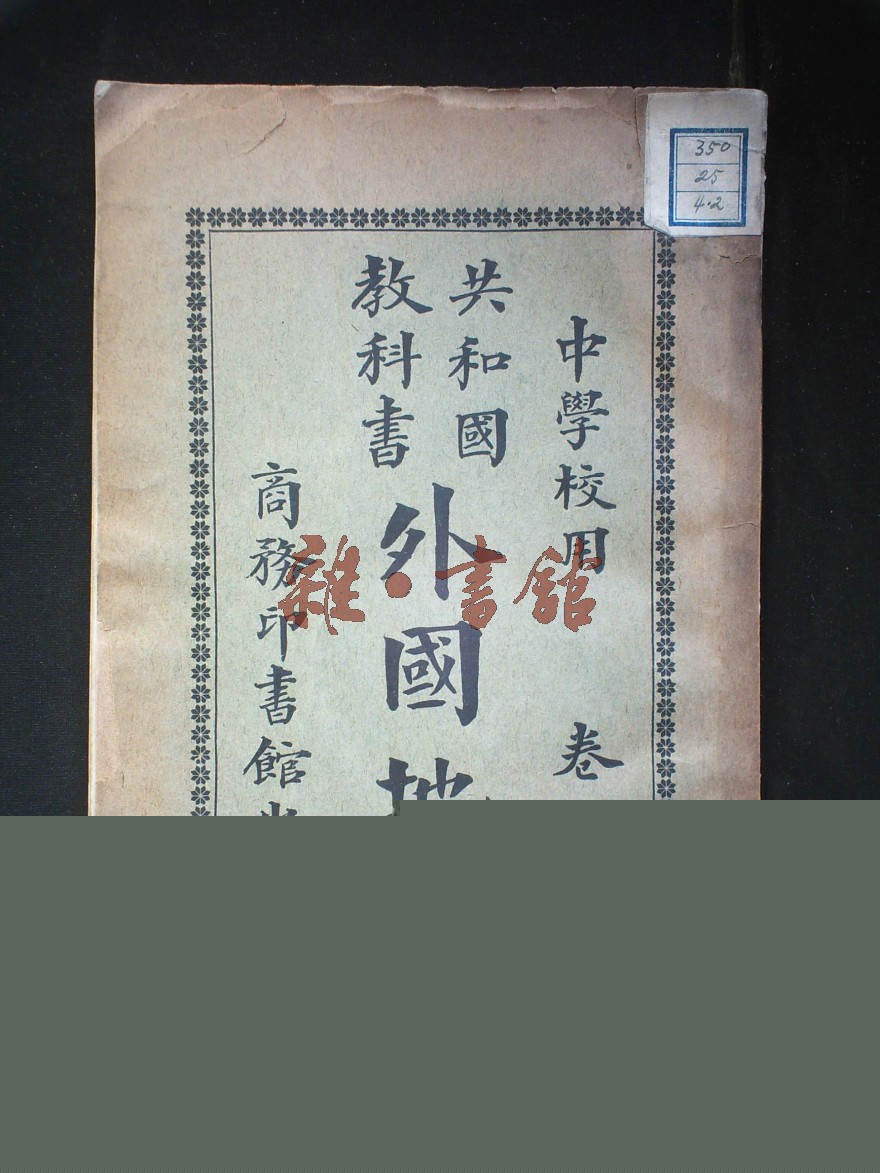 中學校用 卷
共和國
教科書
外國地
商務印書館
雜·書館
350
25
4.2